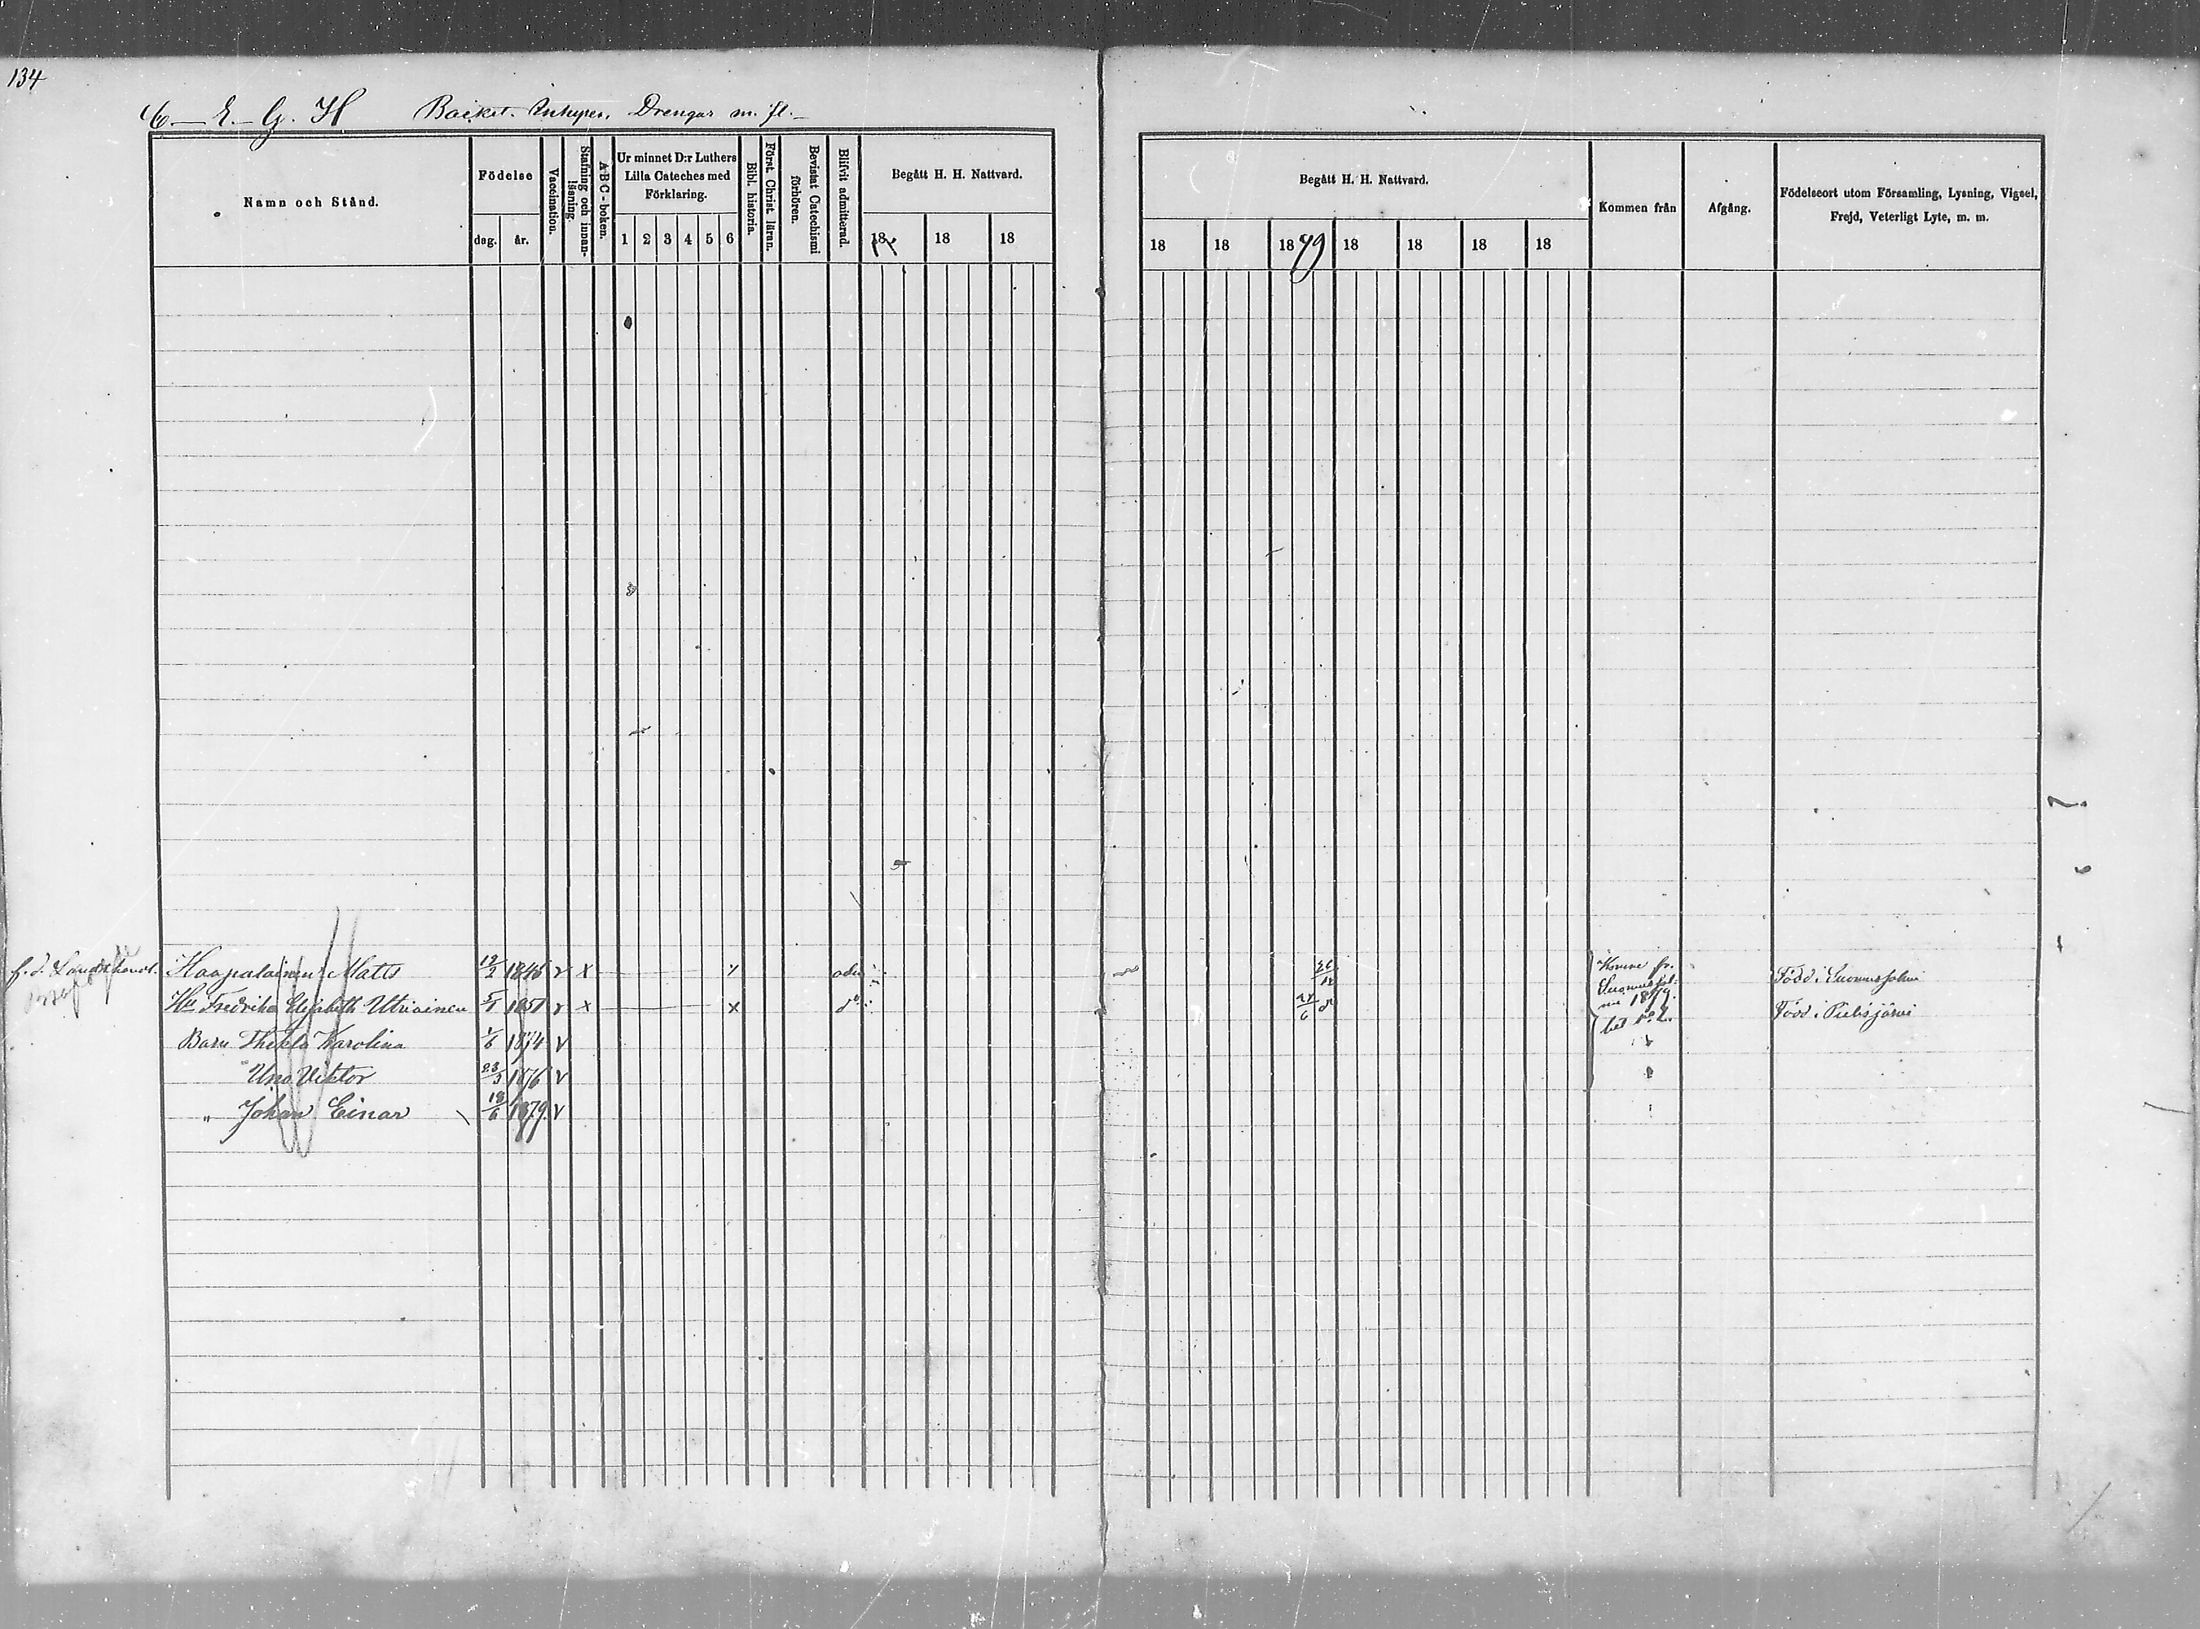 134
C - E. - G. H Backst. Inhyses, Drengar m. fl. -
Namn och Stånd.
Födelse
dag. år.
Vaccination.
Stafning och innanläsning.
A-B-C-boken.
Ur minnet D:r Luthers
Lilla Cateches med
Förklaring.
1 2 3 4 5 6
Bibl. historia.
Först. Christ. läran.
Bevistat Catechismi förhören.
Blifvit admitterad.
Begått H. H. Nattvard.
18 18 18
Begått H. H. Nattvard.
18 18 1879 18 18 18 18
Kommen från
Afgång.
Födelseort utom Församling, Lysning, Vigsel,
Frejd, Veterligt Lyte, m. m.
f. d. Landthandl. Haapalainen Matts 12/2 1846 v x adm Född i Suomussalmi
Hu Fredrika Elisabeth Utriainen 5/1 1851 v x x do 24/6 do Född i Pielisjärvi
Komne fr.
Suomussalmi 1879.
bet. No 2.
Barn Thekla Karolina 1/6 1874 v
" Uno Viktor 23/3 1876 v
" Johan Einar 18/6 1879. v